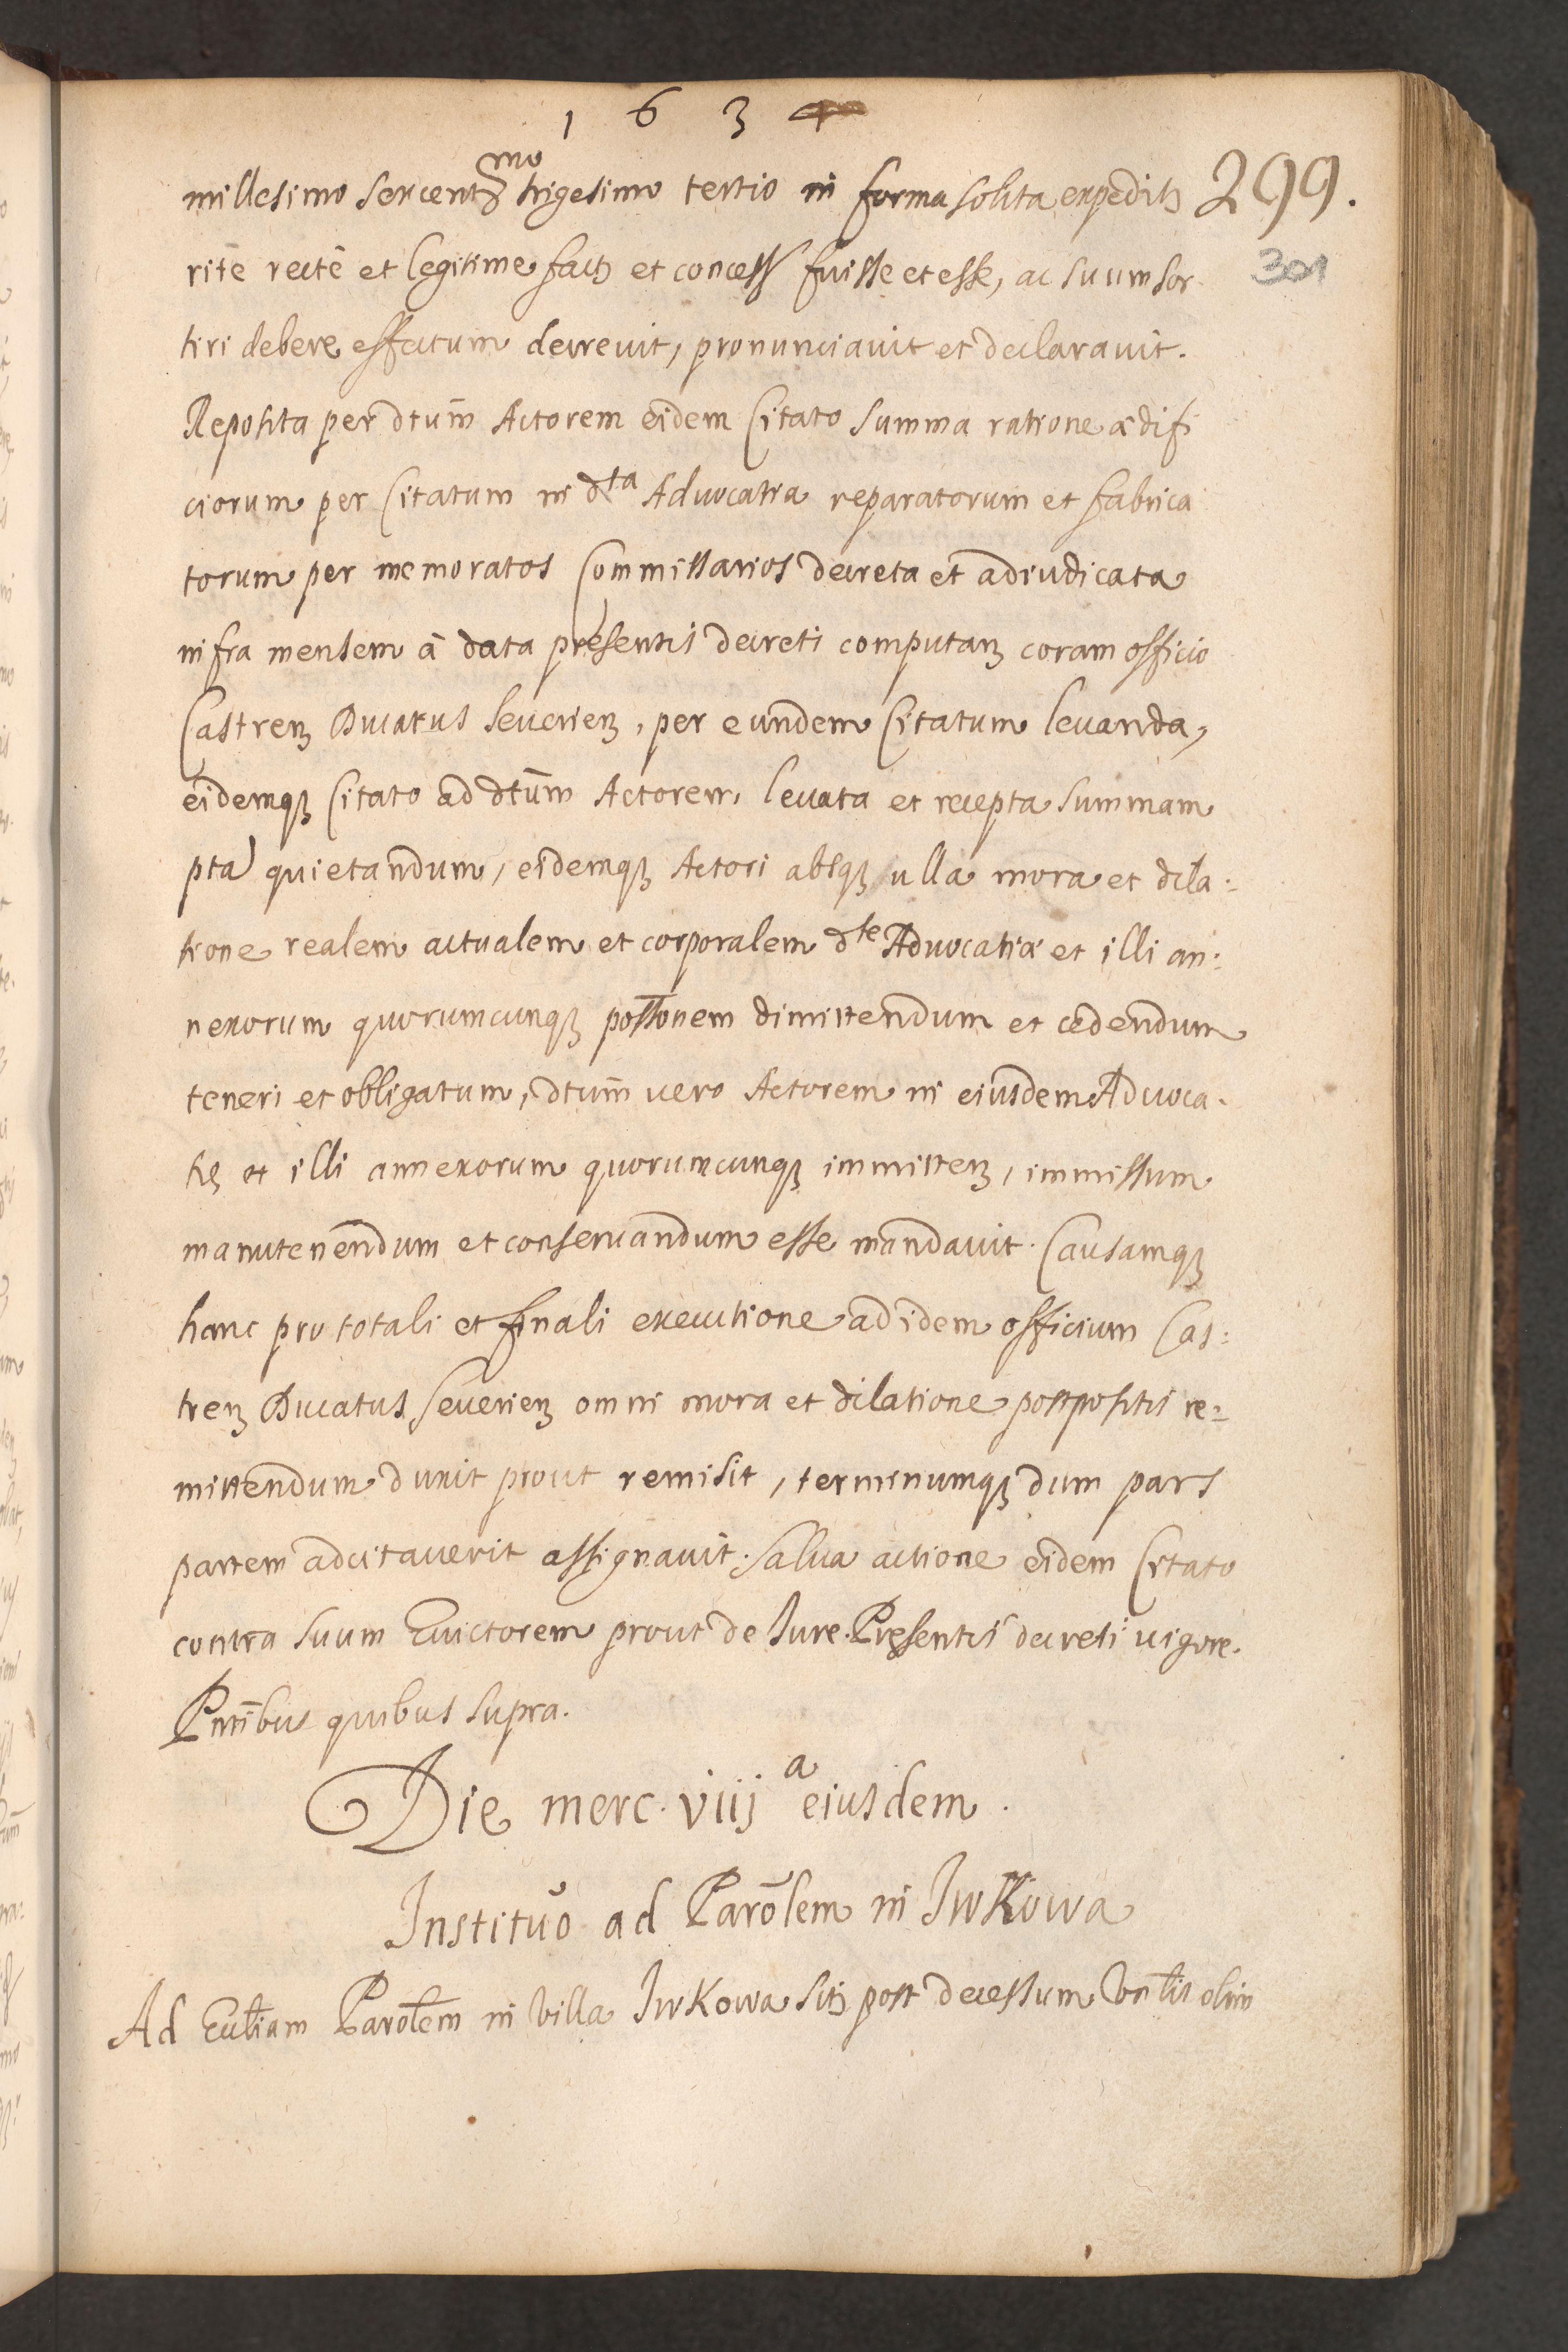 1 6 3 4
millesimo sexcentmo trigesimo tertio in forma solita expeditȝ 299.
ritè rectè et legitime factȝ et concess fuisse et esse, ac suum sor- 301
tiri debere effectum decrevit, pronunciavit et declaravit.
Reposita per dtum̄ Actorem eidem Citato summa ratione ædifi
ciorum per Citatum in dta Advocatia reparatorum et fabrica
torum per memoratos Commissarios decreta et adiudicata
infra mensem à data præsentis decreti computanȝ coram officio
Castrenȝ Ducatus Severienȝ, per eundem Citatum levanda,
eidemqȝ Citato ad dtum̄ Actorem, levata et recepta summam
pta quietandum, eidemqȝ Actori absqȝ ulla mora et dila:
tione realem actualem et corporalem dte Advocatiæ et illi an:
nexorum quorumcunqȝ possonem dimittendum et cedendum
teneri et obligatum, dtum̄ vero Actorem in eiusdem Advoca-
tię et illi annexorum quorumcunqȝ immittenȝ, immissum
manutenendum et conservandum esse mandavit. Causamqȝ
hanc pro totali et finali executione ad idem officium Cas:
trenȝ Ducatus Severienȝ omni mora et dilatione postpositis re:
mittendum duxit prout remisit, terminumqȝ dum pars
partem adcitaverit assignavit. Salva actione eidem Citato
contra suum Evictorem prout de Iure. Pręsentis decreti vigore.
Pntibus quibus supra.
Die merc. viij a eiusdem.
Instituo ad Parolem in Iwkowa
Ad Ecctiam Parolem in Villa Iwkowa sitȝ post decessum Vntis olim